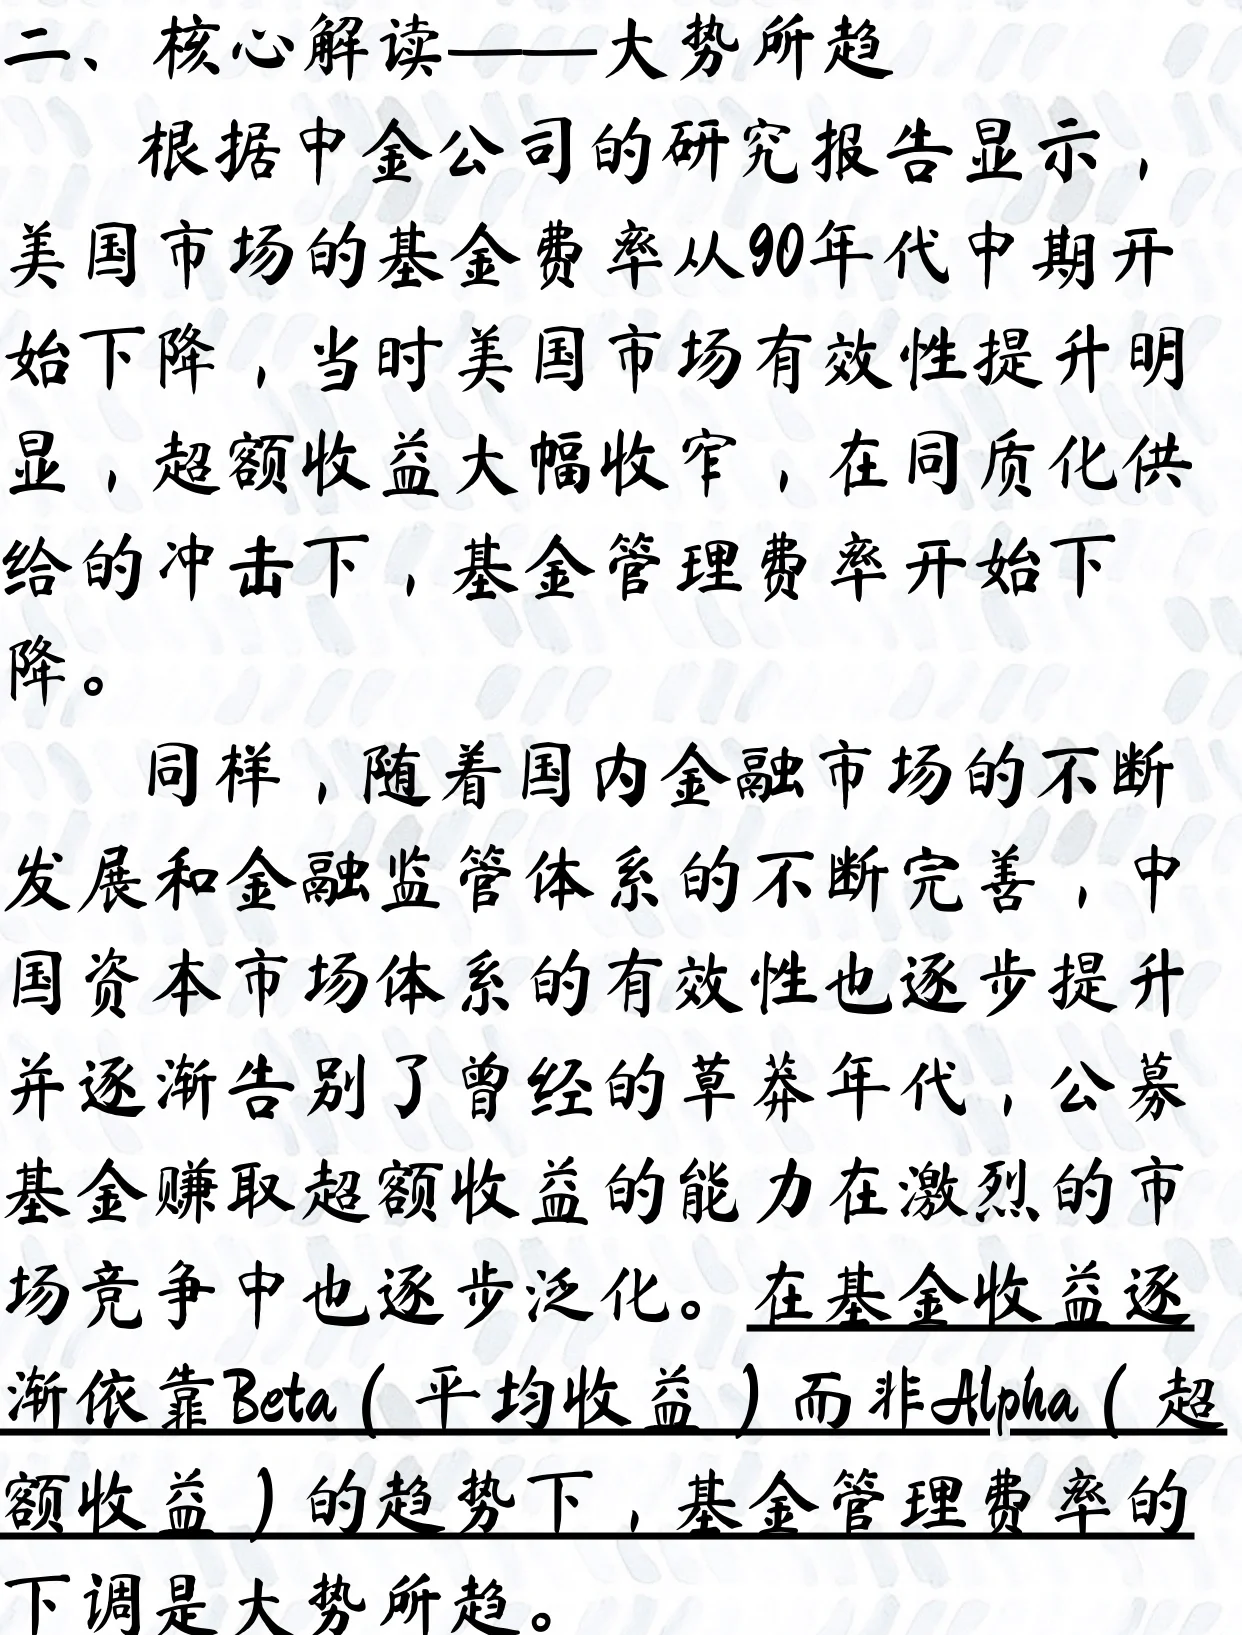 二、核心解读——大势所趋
根据中金公司的研究报告显示，
美国市场的基金费率从90年代中期开
始下降，当时美国市场有效性提升明
显，超额收益大幅收窄，在同质化供
给的冲击下，基金管理费率开始下
降。
同样，随着国内金融市场的不断
发展和金融监管体系的不断完善，中
国资本市场体系的有效性也逐步提升
并逐渐告别了曾经的草莽年代，公募
基金赚取超额收益的能力在激烈的市
场竞争中也逐步泛化。在基金收益逐
渐依靠Beta（平均收益）而非Alpha（超
额收益）的趋势下，基金管理费率的
下调是大势所趋。